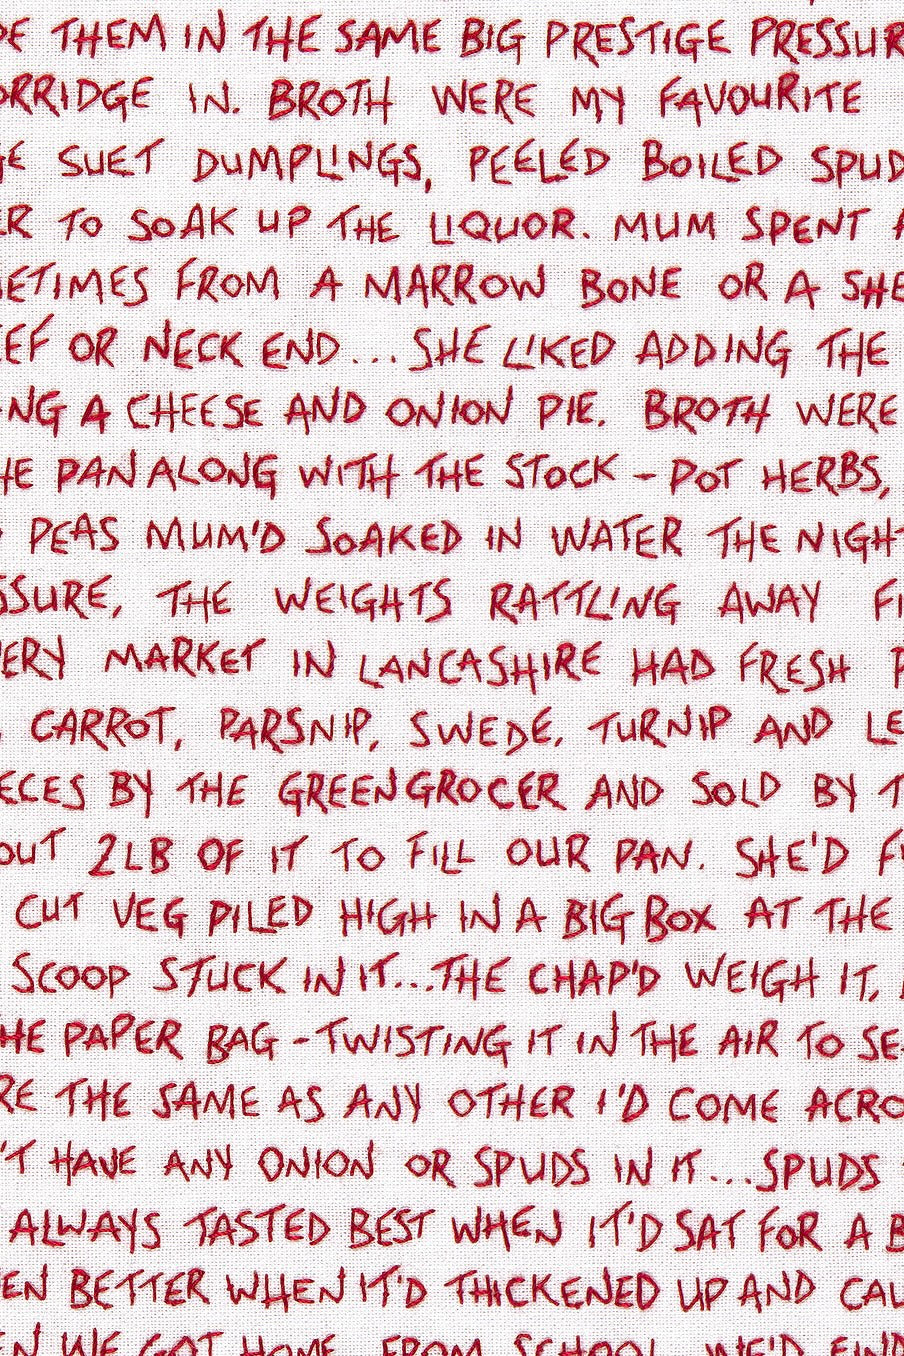 THEM IN THE SAME BIG PRESTIGE PRESSUR
ORRIDGE IN. BROTH WERE MY FAVOURITE
SUET DUMPLINGS, PEELED BOILED SPUD
ER TO SOAK UP THE LIQUOR. MUM SPENT
METIMES FROM A MARROW BONE OR A SHE
EF OR NECK END...SHE LIKED ADDING THE
NG A CHEESE AND ONION PIE. BROTH WERE
HE PAN ALONG WITH THE STOCK - POT HERBS,
PEAS MUM'D SOAKED IN WATER THE NIGHT
SSURE, THE WEIGHTS RATTLING AWAY FI
ERY MARKET IN LANCASHIRE HAD FRESH P
CARROT, PARSNIP, SWEDE, TURNIP AND LE
ECES BY THE GREENGROCER AND SOLD BY T
OUT 2LB OF IT TO FILL OUR PAN. SHE'D F
CUT VEG PILED HIGH IN A BIG BOX AT THE
SCOOP STUCK IN IT...THE CHAP'D WEIGH IT,
HE PAPER BAG - TWISTING IT IN THE AIR TO SE
RE THE SAME AS ANY OTHER I'D COME ACRO
'T HAVE ANY ONION OR SPUDS IN IT...SPUDS
ALWAYS TASTED BEST WHEN IT'D SAT FOR A B
EN BETTER WHEN IT'D THICKENED UP AND CAU
EN WE GOT HOME FROM SCHOOL WE'D FIND